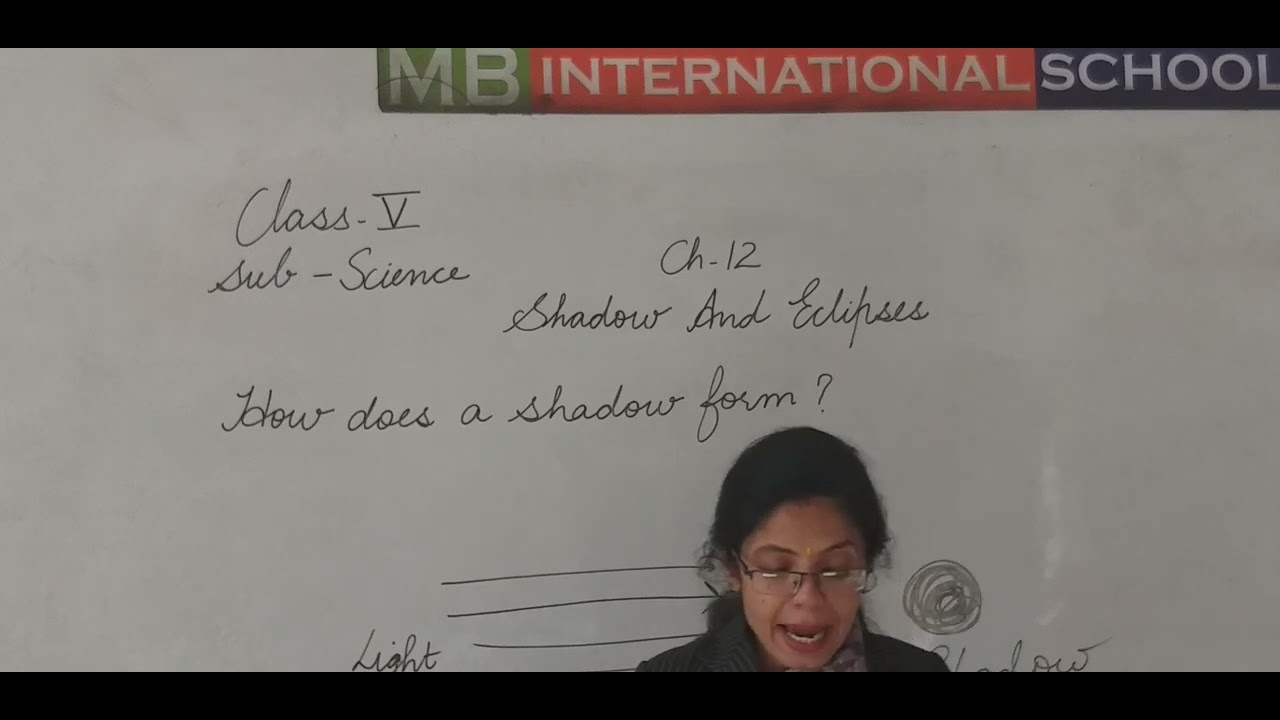 MB INTERNATIONAL SCHOOL
Class-V
Sub-Science
Ch-12
Shadow And Eclipses
How does a shadow form?
Light
Shadow